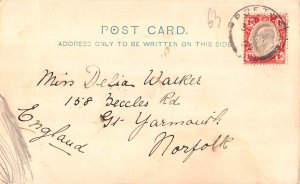 63
POST CARD.
ADDRESS ONLY TO BE WRITTEN ON THIS SIDE
Miss Delia Walker
158 Beccles Rd
Gt Yarmouth
Norfolk
England